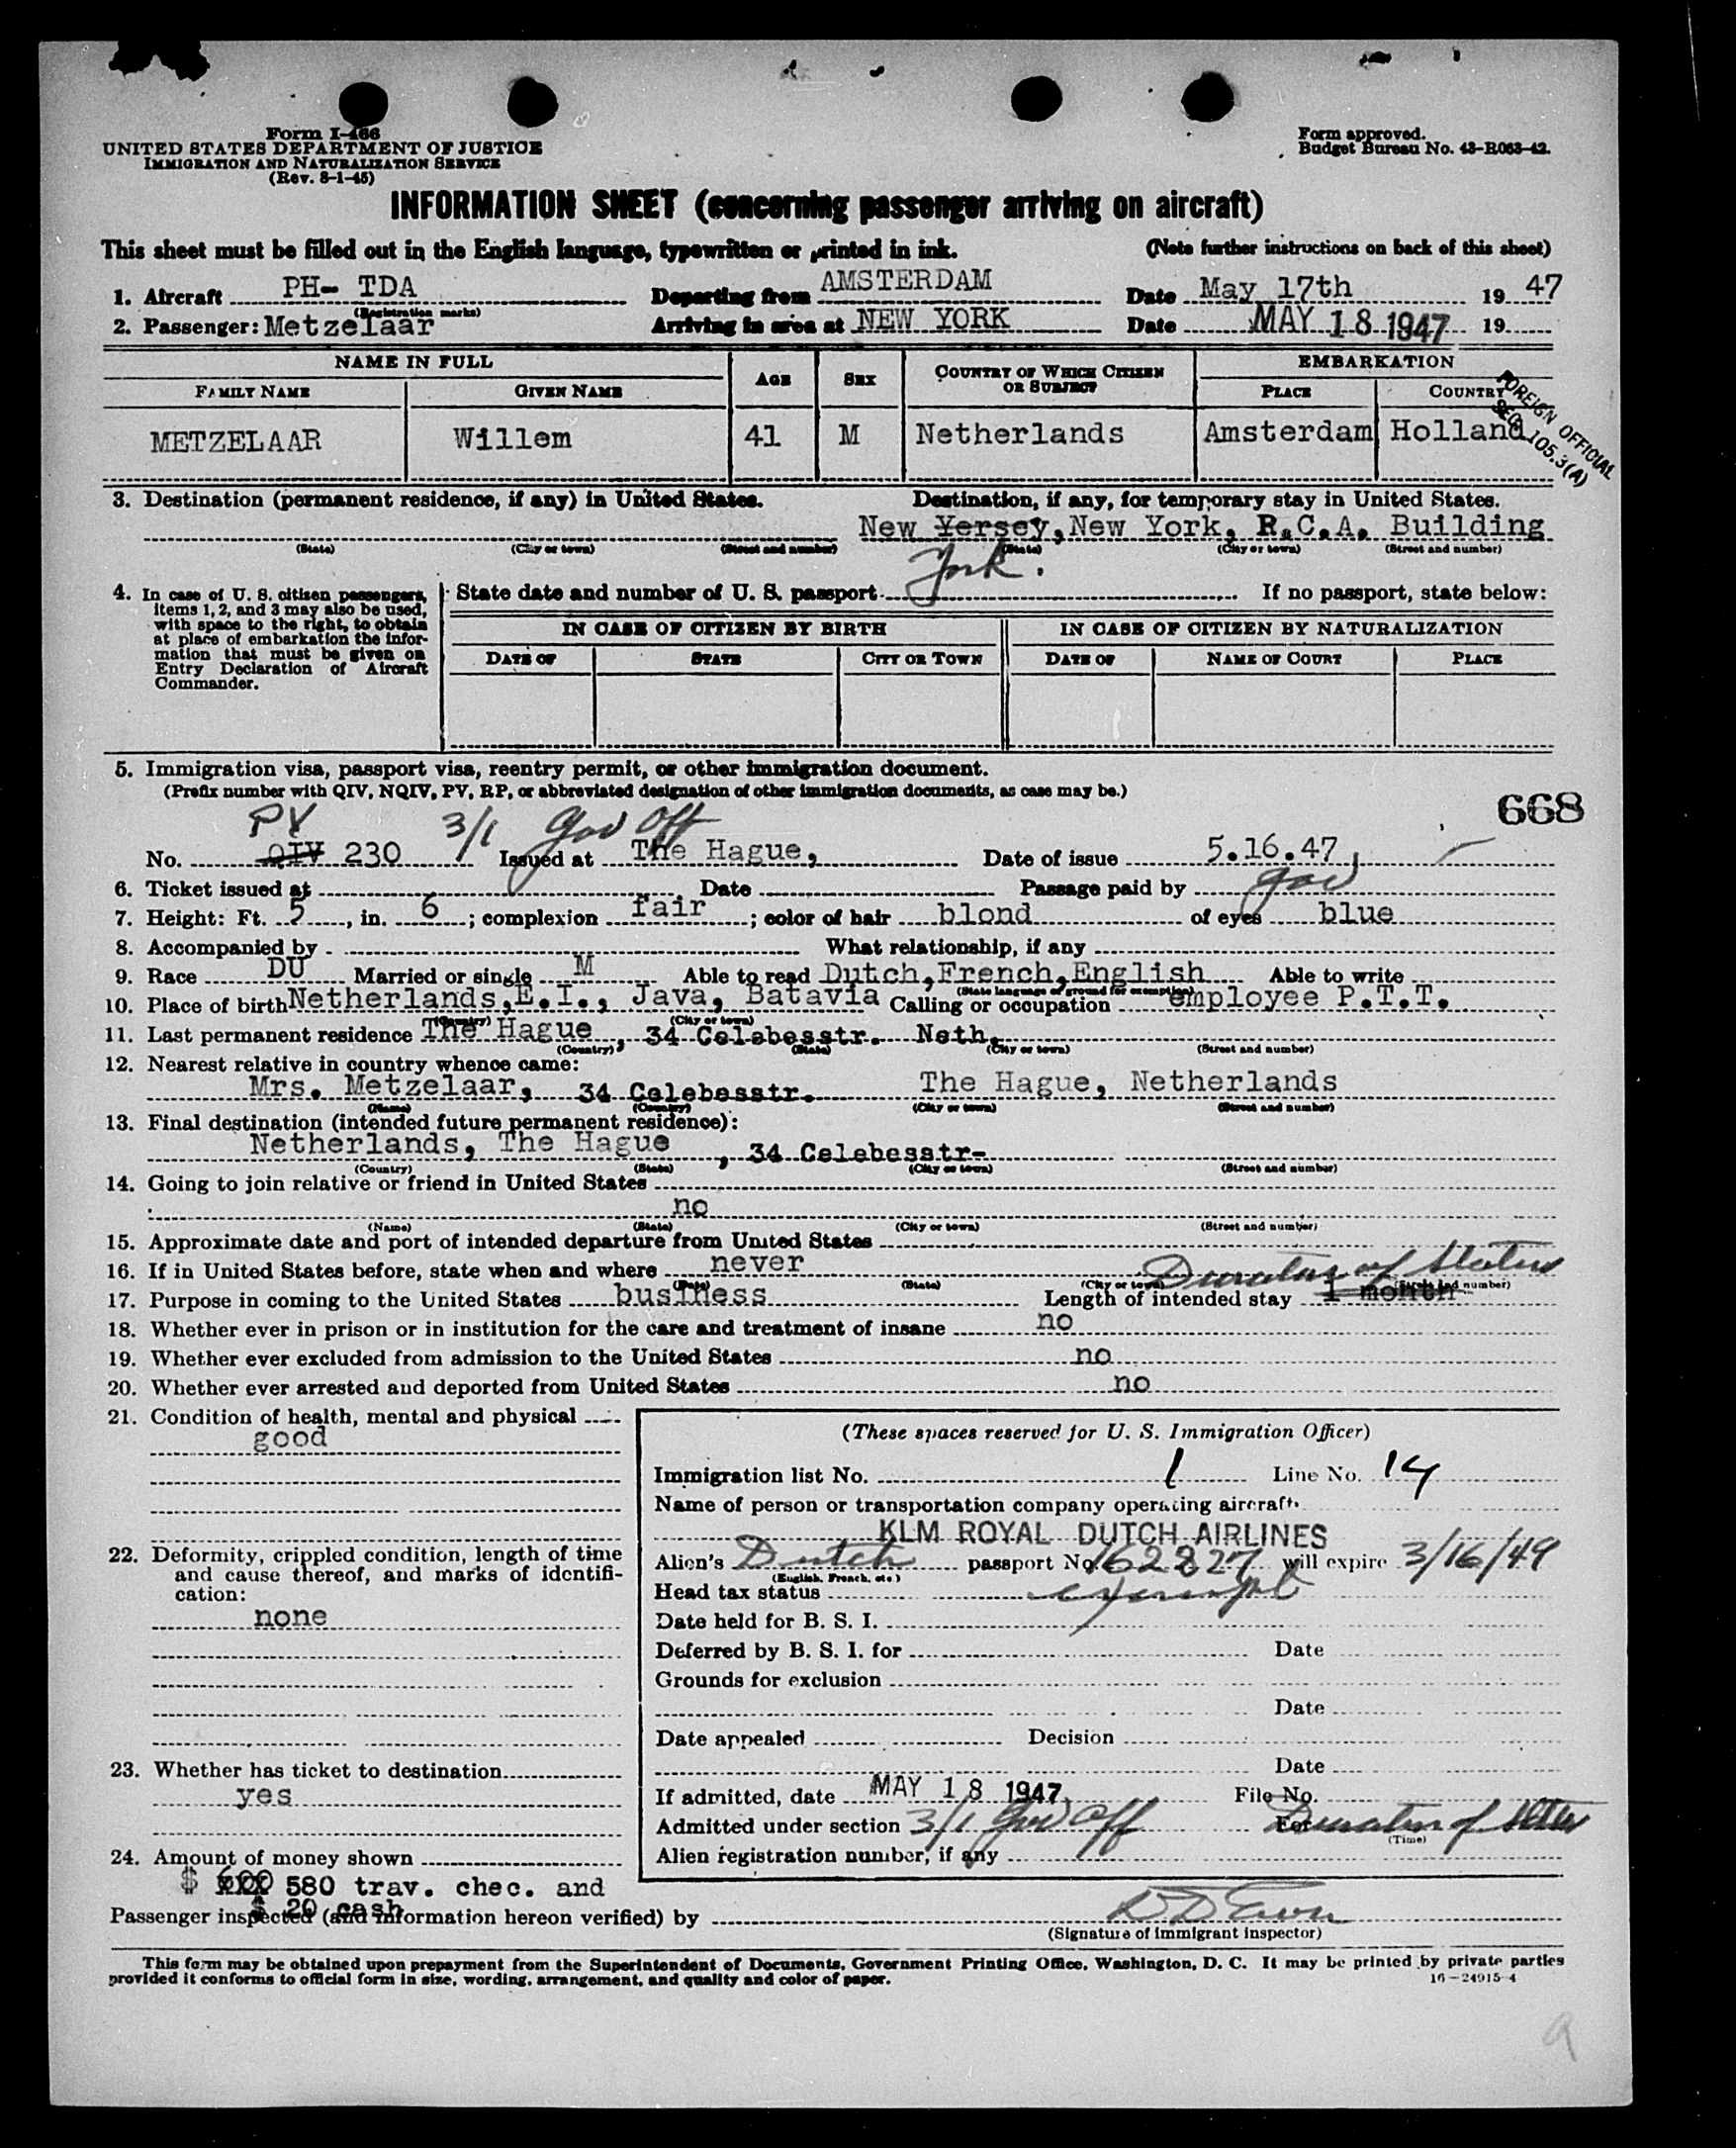 Form I-466
UNITED STATES DEPARTMENT OF JUSTICE
IMMIGRATION AND NATURALIZATION SERVICE
(Rev. 8-1-45)
Form approved.
Budget Bureau No. 43-R063-42.
INFORMATION SHEET (concerning passenger arriving on aircraft)
This sheet must be filled out in the English language, typewritten or printed in ink. (Note further instructions on back of this sheet)
1. Aircraft PH- TDA Departing from AMSTERDAM Date May 17th 19 47
(Registration marks)
2. Passenger: Metzelaar Arriving in area at NEW YORK Date MAY 18 1947 19
NAME IN FULL AGE SEX COUNTRY OF WHICH CITIZEN OR SUBJECT EMBARKATION
FAMILY NAME GIVEN NAME PLACE COUNTRY
METZELAAR Willem 41 M Netherlands Amsterdam Holland
FOREIGN OFFICIAL
SEC. 105.3(A)
3. Destination (permanent residence, if any) in United States. Destination, if any, for temporary stay in United States.
New Yersey, New York, R.C.A. Building
(State) (City or town) (Street and number) (State) (City or town) (Street and number)
York.
4. In case of U. S. citizen passengers, items 1, 2, and 3 may also be used, with space to the right, to obtain at place of embarkation the information that must be given on Entry Declaration of Aircraft Commander.
State date and number of U. S. passport If no passport, state below:
IN CASE OF CITIZEN BY BIRTH IN CASE OF CITIZEN BY NATURALIZATION
DATE OF STATE CITY OR TOWN DATE OF NAME OF COURT PLACE
5. Immigration visa, passport visa, reentry permit, or other immigration document.
(Prefix number with QIV, NQIV, PV, RP, or abbreviated designation of other immigration documents, as case may be.)
668
PV 3/1 Gov Off
No. QIV 230 Issued at The Hague, Date of issue 5.16.47
6. Ticket issued at Date Passage paid by Gov
7. Height: Ft. 5, in. 6; complexion fair; color of hair blond of eyes blue
8. Accompanied by What relationship, if any
9. Race DU Married or single M Able to read Dutch, French, English Able to write
(State language or ground for exemption)
10. Place of birth Netherlands, E.I., Java, Batavia Calling or occupation employee P.T.T.
(Country) (City or town)
11. Last permanent residence The Hague, 34 Celebesstr. Neth.
(Country) (State) (City or town) (Street and number)
12. Nearest relative in country whence came:
Mrs. Metzelaar, 34 Celebesstr. The Hague, Netherlands
(Name) (Country) (City or town) (Street and number)
13. Final destination (intended future permanent residence):
Netherlands, The Hague, 34 Celebesstr-
(Country) (State) (City or town) (Street and number)
14. Going to join relative or friend in United States
no
(Name) (State) (City or town) (Street and number)
15. Approximate date and port of intended departure from United States
16. If in United States before, state when and where never
(Date) (State) (City or town) (Street and number)
Duration of Status
17. Purpose in coming to the United States business Length of intended stay 1 month
18. Whether ever in prison or in institution for the care and treatment of insane no
19. Whether ever excluded from admission to the United States no
20. Whether ever arrested and deported from United States no
21. Condition of health, mental and physical
good
22. Deformity, crippled condition, length of time and cause thereof, and marks of identification:
none
23. Whether has ticket to destination
yes
24. Amount of money shown
$ 600 580 trav. chec. and
$ 20 cash
(These spaces reserved for U. S. Immigration Officer)
Immigration list No. 1 Line No. 14
Name of person or transportation company operating aircraft
KLM ROYAL DUTCH AIRLINES
Alien's Dutch passport No. 162827 will expire 3/16/49
(English, French, etc.)
Head tax status exempt
Date held for B. S. I.
Deferred by B. S. I. for Date
Grounds for exclusion
Date
Date appealed Decision
Date
If admitted, date MAY 18 1947 File No.
Admitted under section 3/1 Gov Off For Duration of Status
(Time)
Alien registration number, if any
Passenger inspected (and information hereon verified) by
(Signature of immigrant inspector)
This form may be obtained upon prepayment from the Superintendent of Documents, Government Printing Office, Washington, D. C. It may be printed by private parties
provided it conforms to official form in size, wording, arrangement, and quality and color of paper. 16-24915-4